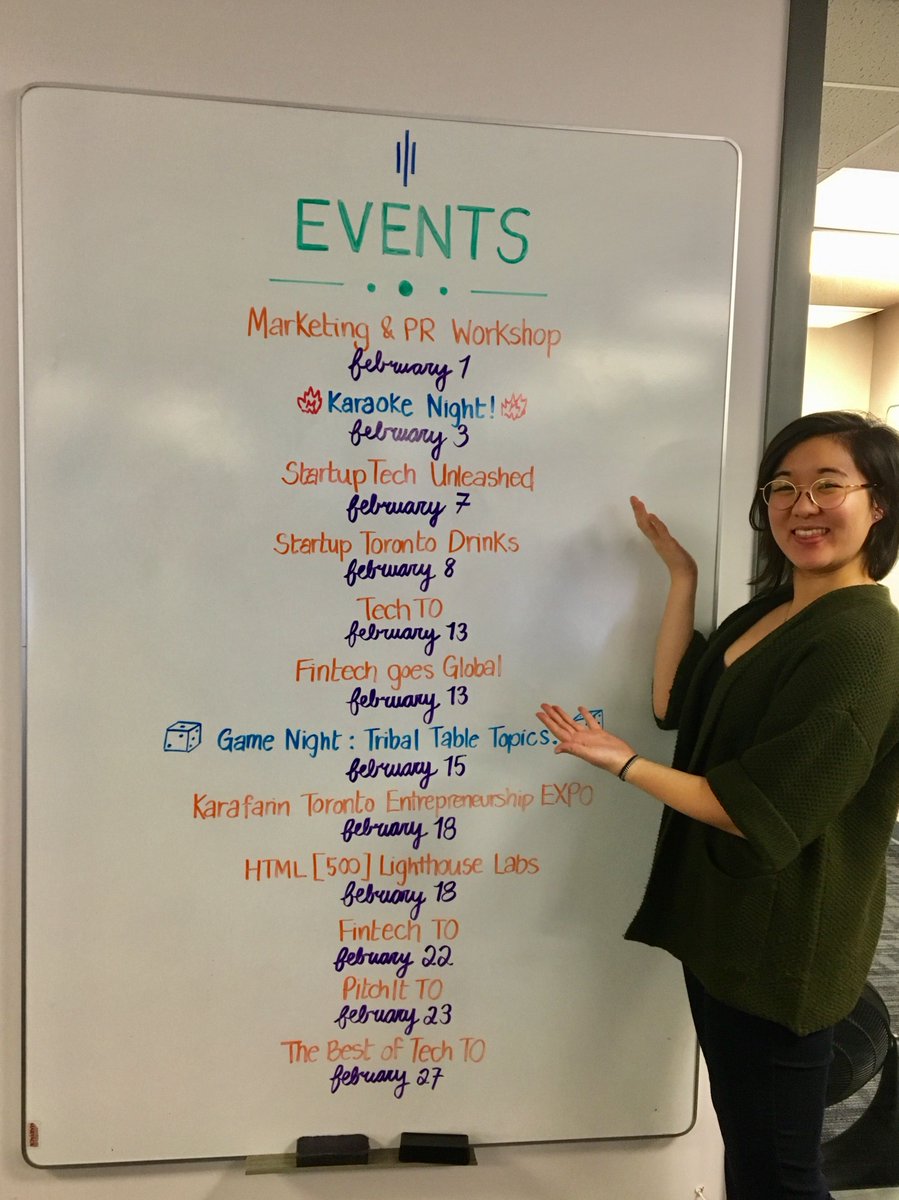 EVENTS
Marketing & PR Workshop
february 1
Karaoke Night!
february 3
StartupTech Unleashed
february 7
Startup Toronto Drinks
february 8
TechTO
february 13
Fintech goes Global
february 13
Game Night : Tribal Table Topics.
february 15
Karafarin Toronto Entrepreneurship EXPO
february 18
HTML [500] Lighthouse Labs
february 18
Fintech TO
february 22
PitchIt TO
february 23
The Best of Tech TO
february 27